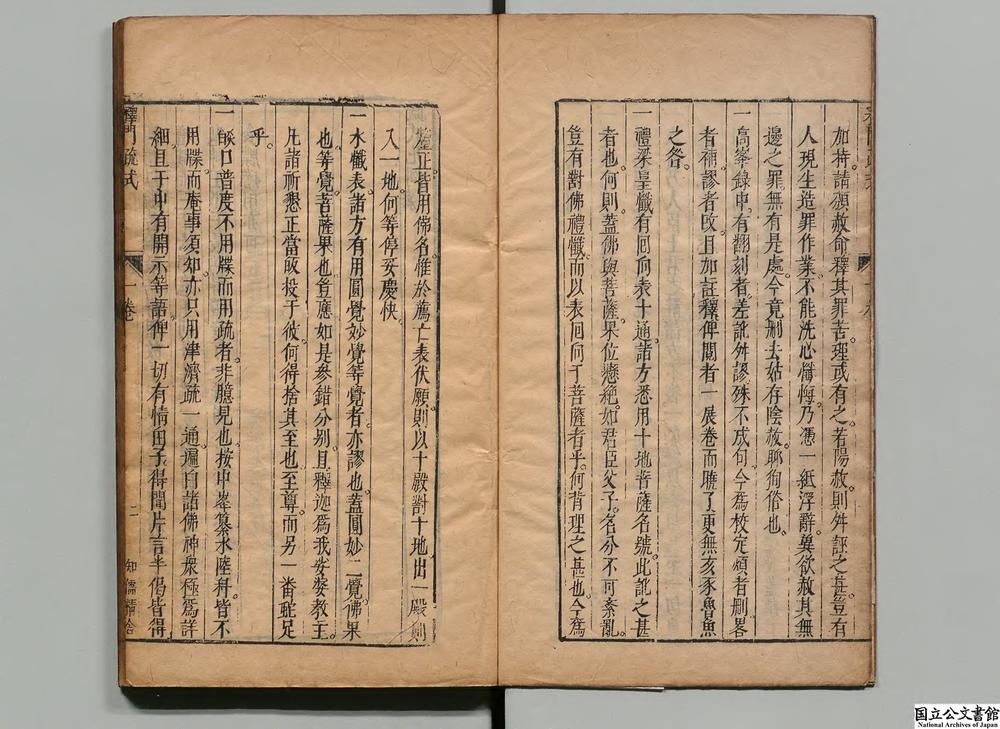 加持請頒赦命釋其罪苦理或有之若陽赦則舛誣之甚豈有
人現生造罪作業不能洗心懺悔乃憑一紙浮辭冀欲赦其無
邊之罪無有是處今竟刪去姑存陰赦聊徇俗也
一高峯錄中有翻刻者差訛舛謬殊不成句今為校定煩者刪畧
者補謬者改且加註釋俾閱者一展卷而瞭了更無亥豕魯魚
之咎
一禮梁皇懺有囘向表十通諸方悉用十地菩薩名號此訛之甚
者也何則蓋佛與菩薩果位懸絶如君臣父子名分不可紊亂
豈有對佛禮懺而以表囘向于菩薩者乎何背理之甚也今為
釐正皆用佛名惟於薦亡表伏願則以十殿對十地出一殿則
入一地何等停妥慶快
一水懺表諸方有用圓覺妙覺等覺者亦謬也蓋圓妙二覺佛果
也等覺菩薩果也豈應如是參錯分别且釋迦為我娑婆教主
凡諸祈懇正當皈投于彼何得捨其至也至尊而另一番駝足
乎
一燄口普度不用牒而用疏者非臆見也按中峯纂水陸科皆不
用牒而庵事須知亦只用津濟疏一通遍白諸佛神衆極為詳
細且于中有開示等語俾一切有情因子得聞片言半偈皆得
釋門疏式
一卷
二
知儒精舍
国立公文書館
National Archives of Japan